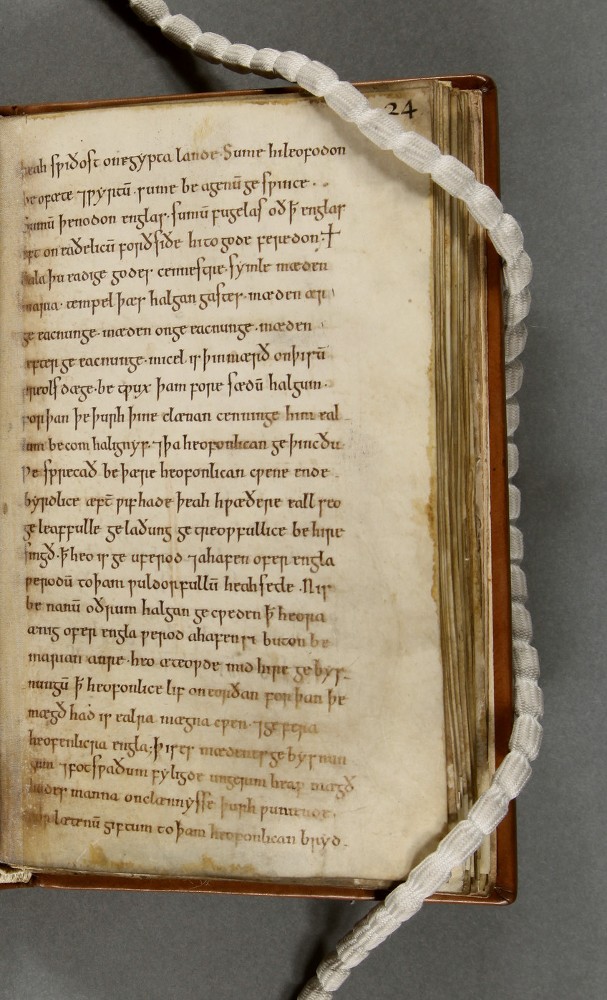 24
þeah spiðost on egypta lande. Sume hi leofodon
be ofæte ⁊ pyrtū. sume be agenū gespince.
sumū þenodon englas. sumū fugelas oð þ̄ englas
eft on eaðelicū forðsiðe hi to gode feredon:
Eala þu eadige godes cennestre. symle mæden
maria. tempel þæs halgan gastes. mæden ær
geeacnunge. mæden on geeacnunge. mæden
æfter geeacnunge. micel is þin mærð on þisū
freols dæge. be tpyx þam fore sædū halgum.
for þan þe þurh þine clænan cenninge him eal
lum becom halignys. ⁊ þa heofonlican geþincðu
þe sprecað be þære heofonlican cpene ende
byrdlice æft̄ pifhade þeah hpæðere eall seo
geleaffulle gelaðung getreopfullice be hire
singð. þ̄ heo is ge uferod ⁊ ahafen ofer engla
perodū to þam puldorfullū heahsetle. Nis
be nanū oðrum halgan gecpeden þ̄ heora
ænig ofer engla perod ahafen si. buton be
marian anre. heo æteopde mid hire gebys-
nungū þ̄ heofonlice lif on eorðan for þan þe
mægð had is ealra mægna cpen. ⁊ gefera
heofenlicra engla; þises mædenes gebysnun
gum ⁊ fotspaðum fyligde ungerim heap mægð
hades manna on clænnysse þurh puniende.
forlætenū giftum to þam heofonlican bryd-